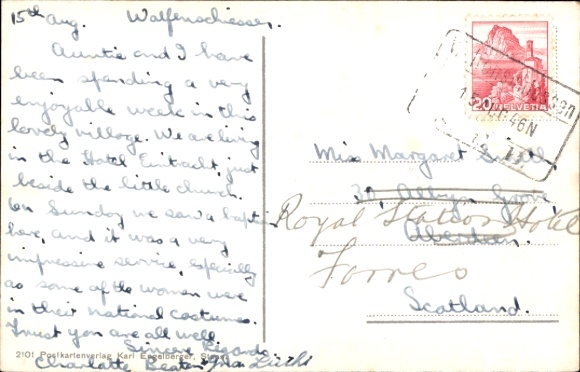 15th Aug. Wolfenschiessen.
Auntie and I have
been spending a very
enjoyable week in this
lovely village. We are living
in the Hotel Eintracht, just
beside the little church.
On Sunday we saw a baptism
here, and it was a very
impressive service, especially
as some of the women were
in their national costumes.
Trust you are all well.
Sincere Regards
Charlotte Beaton
2101 Postkartenverlag Karl Engelberger,
20 HELVETIA
Miss Margaret
30, Albyn Grove
Royal Station Hotel
Aberdeen.
Forres
Scotland.